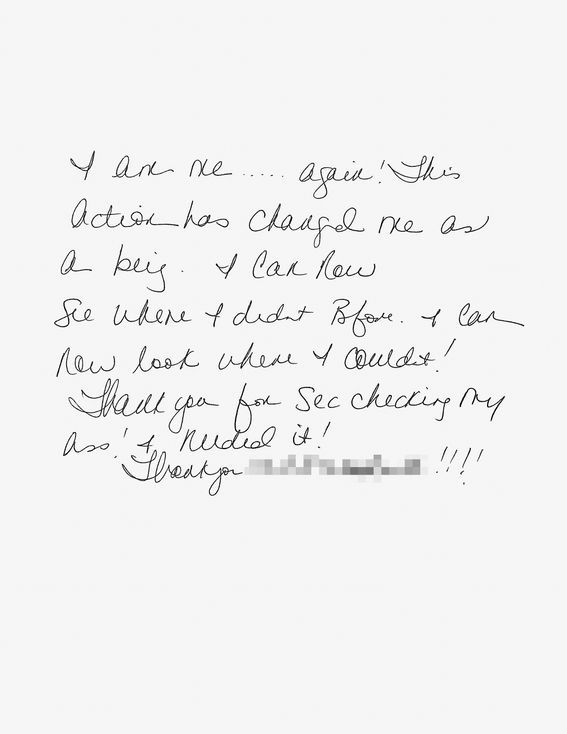 I am me ..... again! This
Action has changd me as
a beig. I Can Now
See where I didnt Bfore. I can
Now look where I couldt!
Thank you for Sec checking my
ass! I needed it!
Thank you !!!!